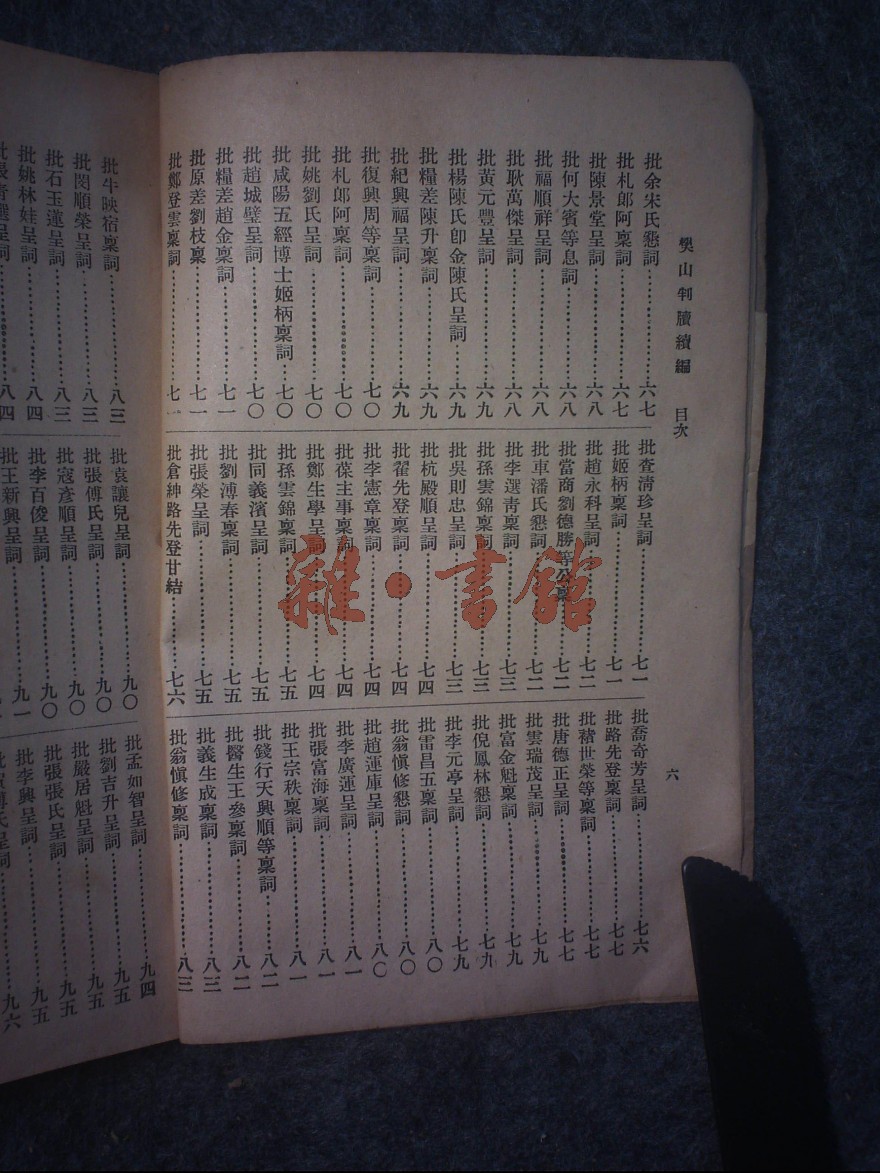 樊山判牘續編　目次
六
批余宋氏懇詞…………六七
批札郎阿稟詞…………六七
批陳景堂呈詞…………六八
批何大賓等息詞…………六八
批福順祥呈詞…………六八
批耿萬傑呈詞…………六八
批黃元豐呈詞…………六九
批楊陳氏卽金陳氏呈詞…………六九
批糧差陳升稟詞…………六九
批紀興福呈詞…………六九
批復興周等稟詞…………七〇
批札郎阿稟詞…………七〇
批姚劉氏呈詞…………七〇
批咸陽五經博士姬柄稟詞…………七〇
批趙城璧呈詞…………七〇
批糧差趙金稟詞…………七一
批原差劉枝稟…………七一
批鄭登雲稟詞…………七一
批查清珍呈詞…………七一
批姬柄稟詞…………七一
批趙永科呈詞…………七二
批當商劉德勝等公稟…………七二
批車潘氏懇詞…………七二
批李選青稟詞…………七三
批孫雲錦稟詞…………七三
批吳則忠呈詞…………七三
批杭殿順呈詞…………七四
批翟先登稟詞…………七四
批李憲章稟詞…………七四
批葆主事稟詞…………七四
批鄭生學呈詞…………七四
批孫雲錦稟詞…………七五
批同義濱呈詞…………七五
批劉溥春稟詞…………七五
批張榮呈詞…………七五
批倉紳路先登甘結…………七六
批喬奇芳呈詞…………七六
批路先登稟詞…………七七
批稽世榮等稟詞…………七七
批唐德正呈詞…………七七
批雲瑞茂呈詞…………七九
批富金魁稟詞…………七九
批倪鳳林懇詞…………七九
批李元亭呈詞…………七九
批雷昌五稟詞…………八〇
批翁愼修懇詞…………八〇
批趙運庫呈詞…………八〇
批李廣運呈詞…………八一
批張富海稟詞…………八一
批王宗秩稟詞…………八一
批錢行天興順等稟詞…………八二
批醫生王參稟詞…………八二
批義生成稟詞…………八三
批翁愼修稟詞…………八三
批牛映宿稟詞…………八三
批閔順榮呈詞…………八三
批石玉蓮呈詞…………八三
批姚林娃呈詞…………八四
選呈詞…………八四
批袁讓兒呈詞…………九〇
批張傅氏呈詞…………九〇
批寇彥順呈詞…………九〇
批李百俊呈詞…………九〇
批王新興呈詞…………九一
批孟如智呈詞…………九四
批劉吉升呈詞…………九五
批嚴居魁呈詞…………九五
批張張氏呈詞…………九五
批李興呈詞…………九五
傅氏呈詞…………九六
雜·書館